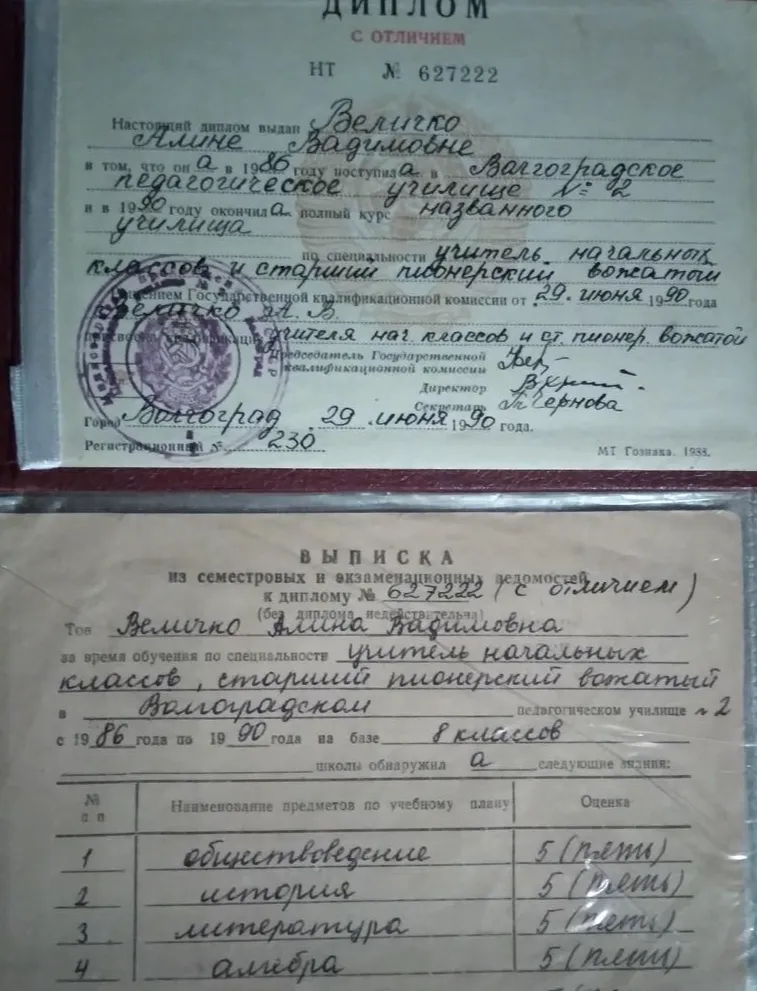 ДИПЛОМ
С ОТЛИЧИЕМ
НТ № 627222
Настоящий диплом выдан Величко
Алине Вадимовне
в том, что он а в 1986 году поступил а в Волгоградское
педагогическое училище № 2
и в 1990 году окончил а полный курс названного
училища
по специальности учитель начальных
классов и старший пионерский вожатый
Решением Государственной квалификационной комиссии от 29 июня 1990 года
Величко А. В.
присвоена квалификация учителя нач. классов и ст. пионер. вожатой
Председатель Государственной
квалификационной комиссии
Директор
Секретарь Т. Чернова
Город Волгоград 29 июня 1990 года.
Регистрационный № 230
МТ Гознака. 1988.
ВЫПИСКА
из семестровых и экзаменационных ведомостей
к диплому № 627222 (с отличием)
(без диплома недействительна)
Тов Величко Алина Вадимовна
за время обучения по специальности учитель начальных
классов, старший пионерский вожатый
в Волгоградском педагогическом училище № 2
с 1986 года по 1990 года на базе 8 классов
школы обнаружил а следующие знания:
№ п п Наименование предметов по учебному плану Оценка
1 обществоведение 5 (пять)
2 история 5 (пять)
3 литература 5 (пять)
4 алгебра 5 (пять)